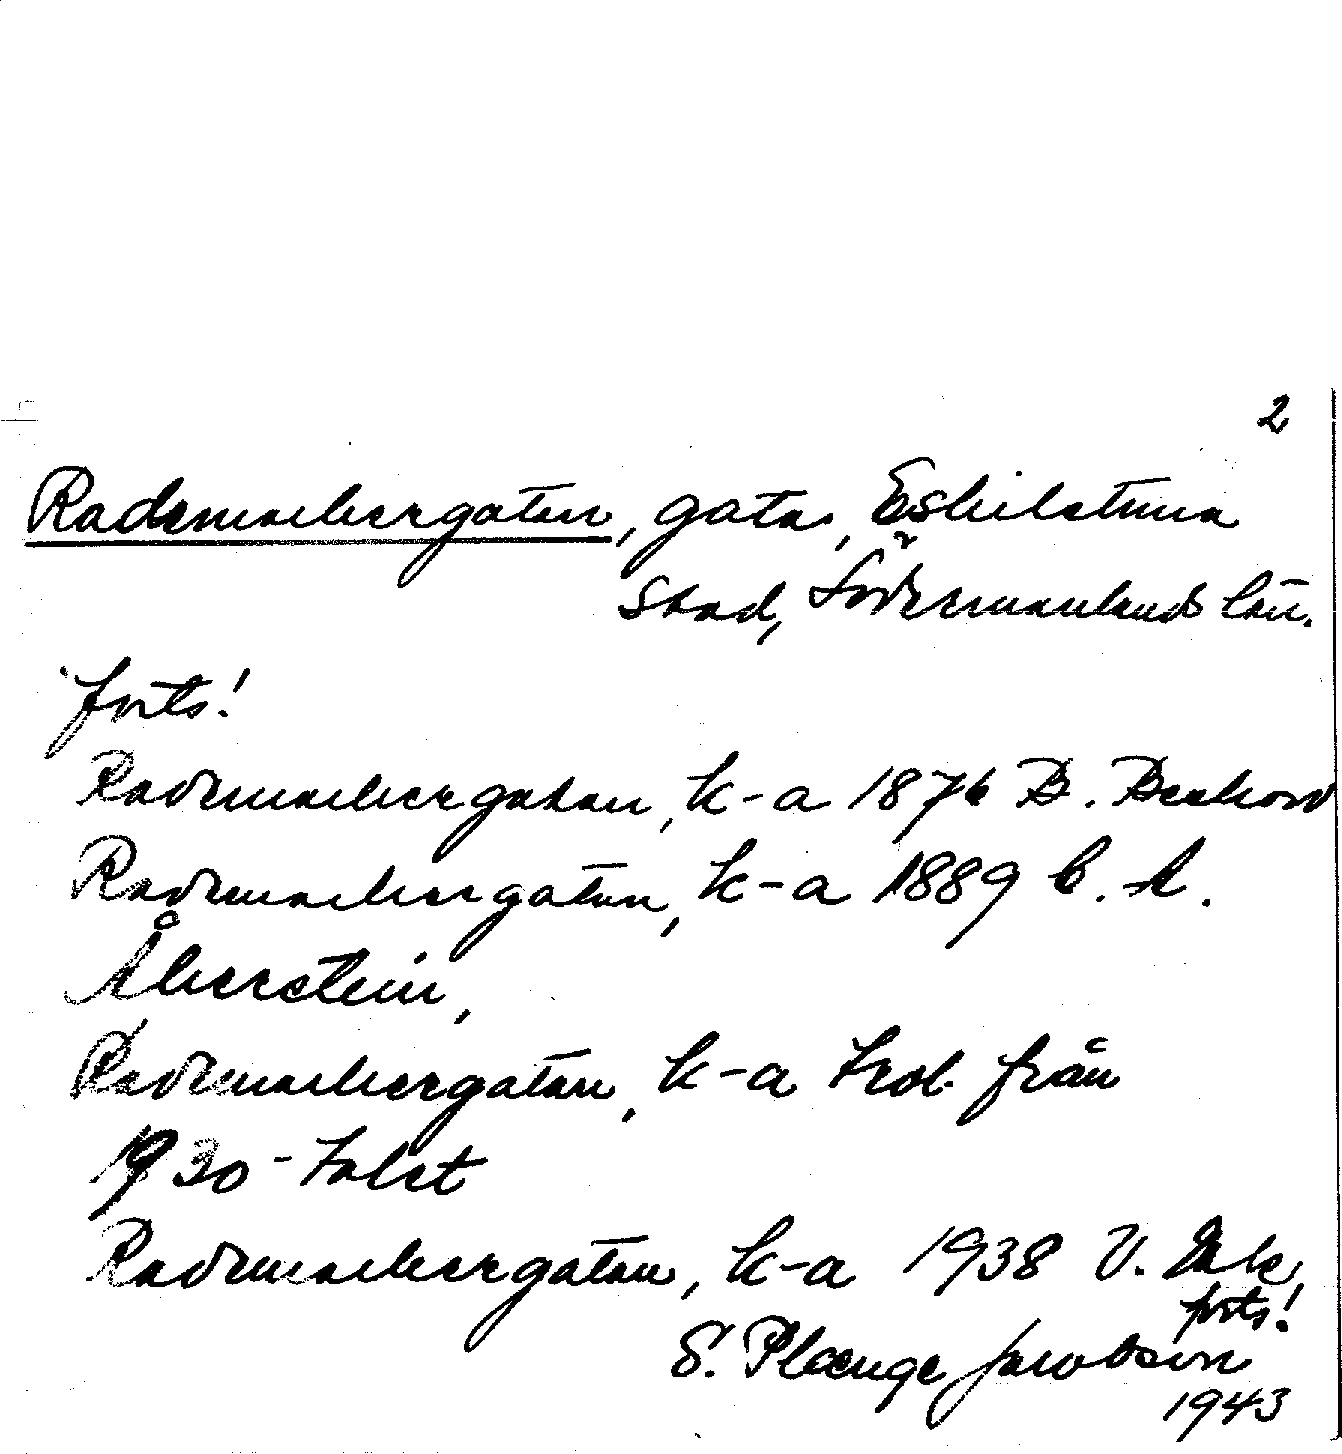 2
Rademachergatan, gata, Eskilstuna
stad, Södermanlands län.
forts!
Rademachergatan, k-a 1876 B. Beckow
Rademachergatan, k-a 1889 C. A.
Åkerstein,
Rademachergatan, k-a trol. från
1930-talet
Rademachergatan, k-a 1938 V.
forts!
S. Plænge Jacobson
1943